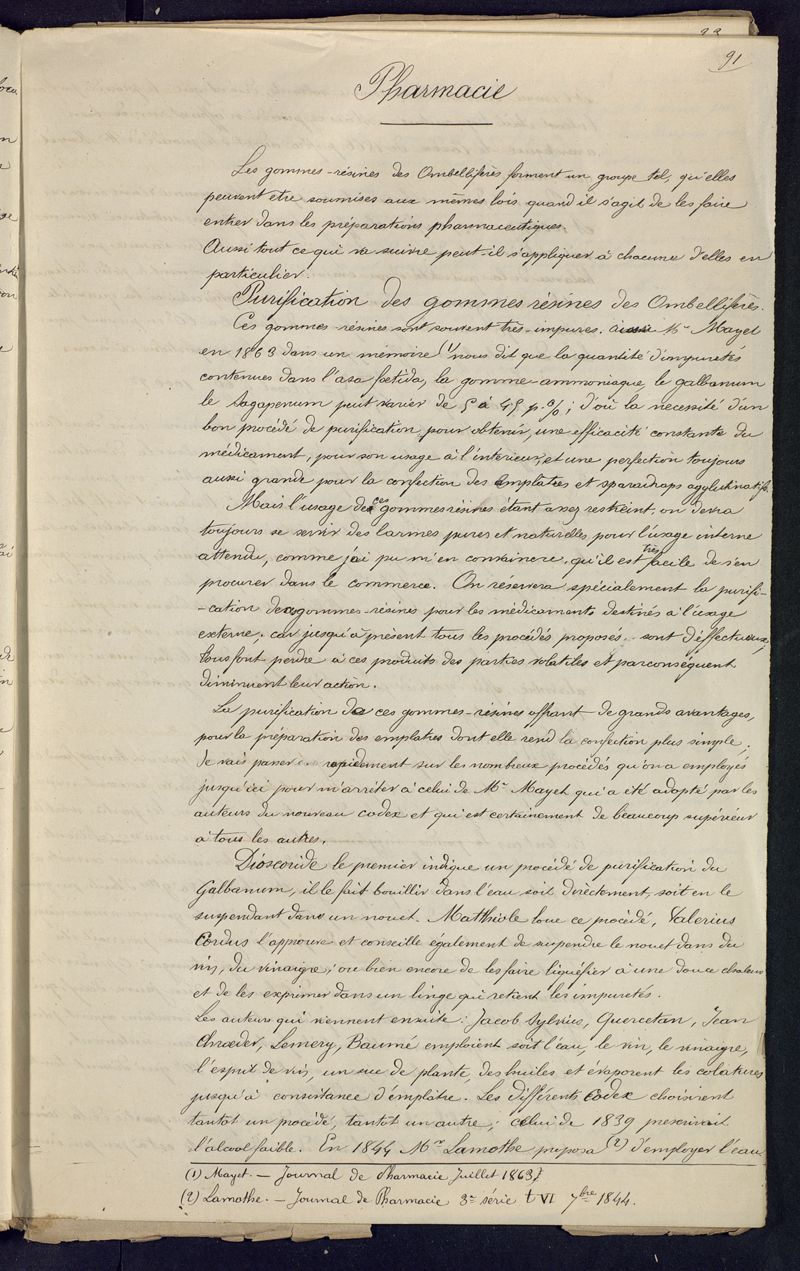 91
Pharmacie
Les gommes-résines des Ombellifères forment un groupe tel, qu'elles
peuvent etre soumises aux mêmes lois quand il s'agit de les faire
entrer dans les préparations pharmaceutiques.
Aussi tout ce qui va suivre peut-il s'appliquer à chacune d'elles en
particulier.
Purification des gommes résines des Ombellifères.
Ces gommes-résines sont souvent très-impures. aussi Mr Mayet
en 1863 dans un mémoire (1) nous dit que la quantité d'impuretés
contenues dans l'asa foetida, la gomme-ammoniaque, le galbanum
le Sagapenum peut varier de 5 à 45 p. %; d'où la necessité d'un
bon procédé de purification, pour obtenir, une efficacité constante du
médicament, pour son usage à l'intérieur, et une perfection toujours
aussi grande pour la confection des emplatres et sparadraps agglutinatifs.
Mais l'usage de ces gommes résines étant assez restreint, on devra
toujours se servir des larmes pures et naturelles pour l'usage interne
attendu, comme j'ai pu m'en convaincre, qu'il est très facile de s'en
procurer dans le commerce. On réservera spécialement la purifi-
-cation des gommes-résines pour les médicaments destinés à l'usage
externe. car jusqu'à présent tous les procédés proposés, sont défectueux,
tous font perdre à ces produits des parties volatiles et parconséquent
diminuent leur action.
La purification de ces gommes-résines offrant de grands avantages,
pour la préparation des emplatres dont elle rend la confection plus simple;
Je vais passer rapidement sur les nombreux procédés qu'on a employés
jusqu'ici pour m'arrêter à celui de Mr Mayet qui a été adopté par les
auteurs du nouveau codex et qui est certainement de beaucoup supérieur
à tous les autres.
Dioscoride le premier indique un procédé de purification du
Galbanum, il le fait bouillir dans l'eau soit directement, soit en le
suspendant dans un nouet. Matthiole loue ce procédé, Valerius
Cordus l'approuve et conseille également de suspendre le nouet dans du
vin, du vinaigre; ou bien encore de les faire liquéfier à une douce chaleur
et de les exprimer dans un linge qui retient les impuretés.
Les auteurs qui viennent ensuite: Jacob Sylvius, Quercetan, Jean
Chrœder, Lemery, Baumé emploient soit l'eau, le vin, le vinaigre,
l'esprit de vin, un suc de plante, des huiles et évaporent les colatures
jusqu'à consistance d'emplâtre. Les différents Codex choisirent
tantot un procédé, tantot un autre; celui de 1839 prescrivait
l'alcool faible. En 1844 Mr Lamothe proposa (2) d'employer l'eau
(1) Mayet. — Journal de Pharmacie Juillet 1863
(2) Lamothe. — Journal de Pharmacie 3e série t VI 7bre 1844.